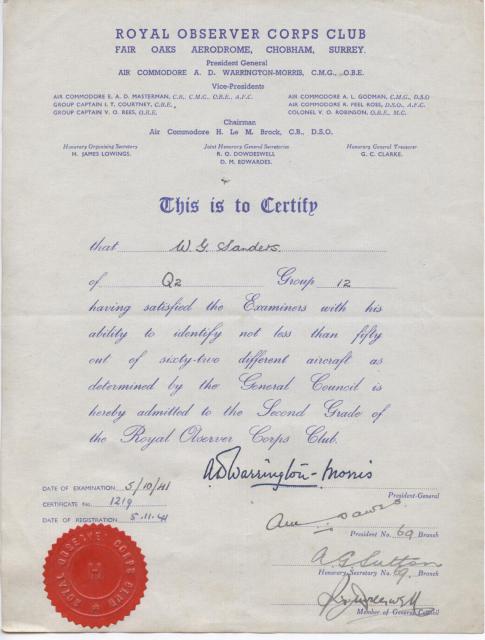 ROYAL OBSERVER CORPS CLUB
FAIR OAKS AERODROME, CHOBHAM, SURREY.
President General
AIR COMMODORE A. D. WARRINGTON-MORRIS, C.M.G., O.B.E.
Vice-Presidents
AIR COMMODORE E. A. D. MASTERMAN, C.B., C.M.G., O.B.E., A.F.C.
GROUP CAPTAIN I. T. COURTNEY, C.B.E.,
GROUP CAPTAIN V. O. REES, O.B.E.
AIR COMMODORE A. L. GODMAN, C.M.G., D.S.O
AIR COMMODORE R. PEEL ROSS, D.S.O., A.F.C.
COLONEL V. O. ROBINSON, O.B.E., M.C.
Chairman
Air Commodore H. Le M. Brock, C.B., D.S.O.
Honorary Organising Secretary
H. JAMES LOWINGS.
Joint Honorary General Secretaries
R. O. DOWDESWELL
D. M. EDWARDES.
Honorary General Treasurer
G. C. CLARKE.
This is to Certify
that W. G. Sanders.
of Q2 Group 12
having satisfied the Examiners with his
ability to identify not less than fifty
out of sixty-two different aircraft as
determined by the General Council is
hereby admitted to the Second Grade of
the Royal Observer Corps Club.
A D Warrington-Morris
President-General
DATE OF EXAMINATION 5/10/41
CERTIFICATE No. 1219
DATE OF REGISTRATION 5.11.41
President No. 69 Branch
A G Sutton
Honorary Secretary No. 69. Branch
Member of General Council
ROYAL OBSERVER CORPS CLUB